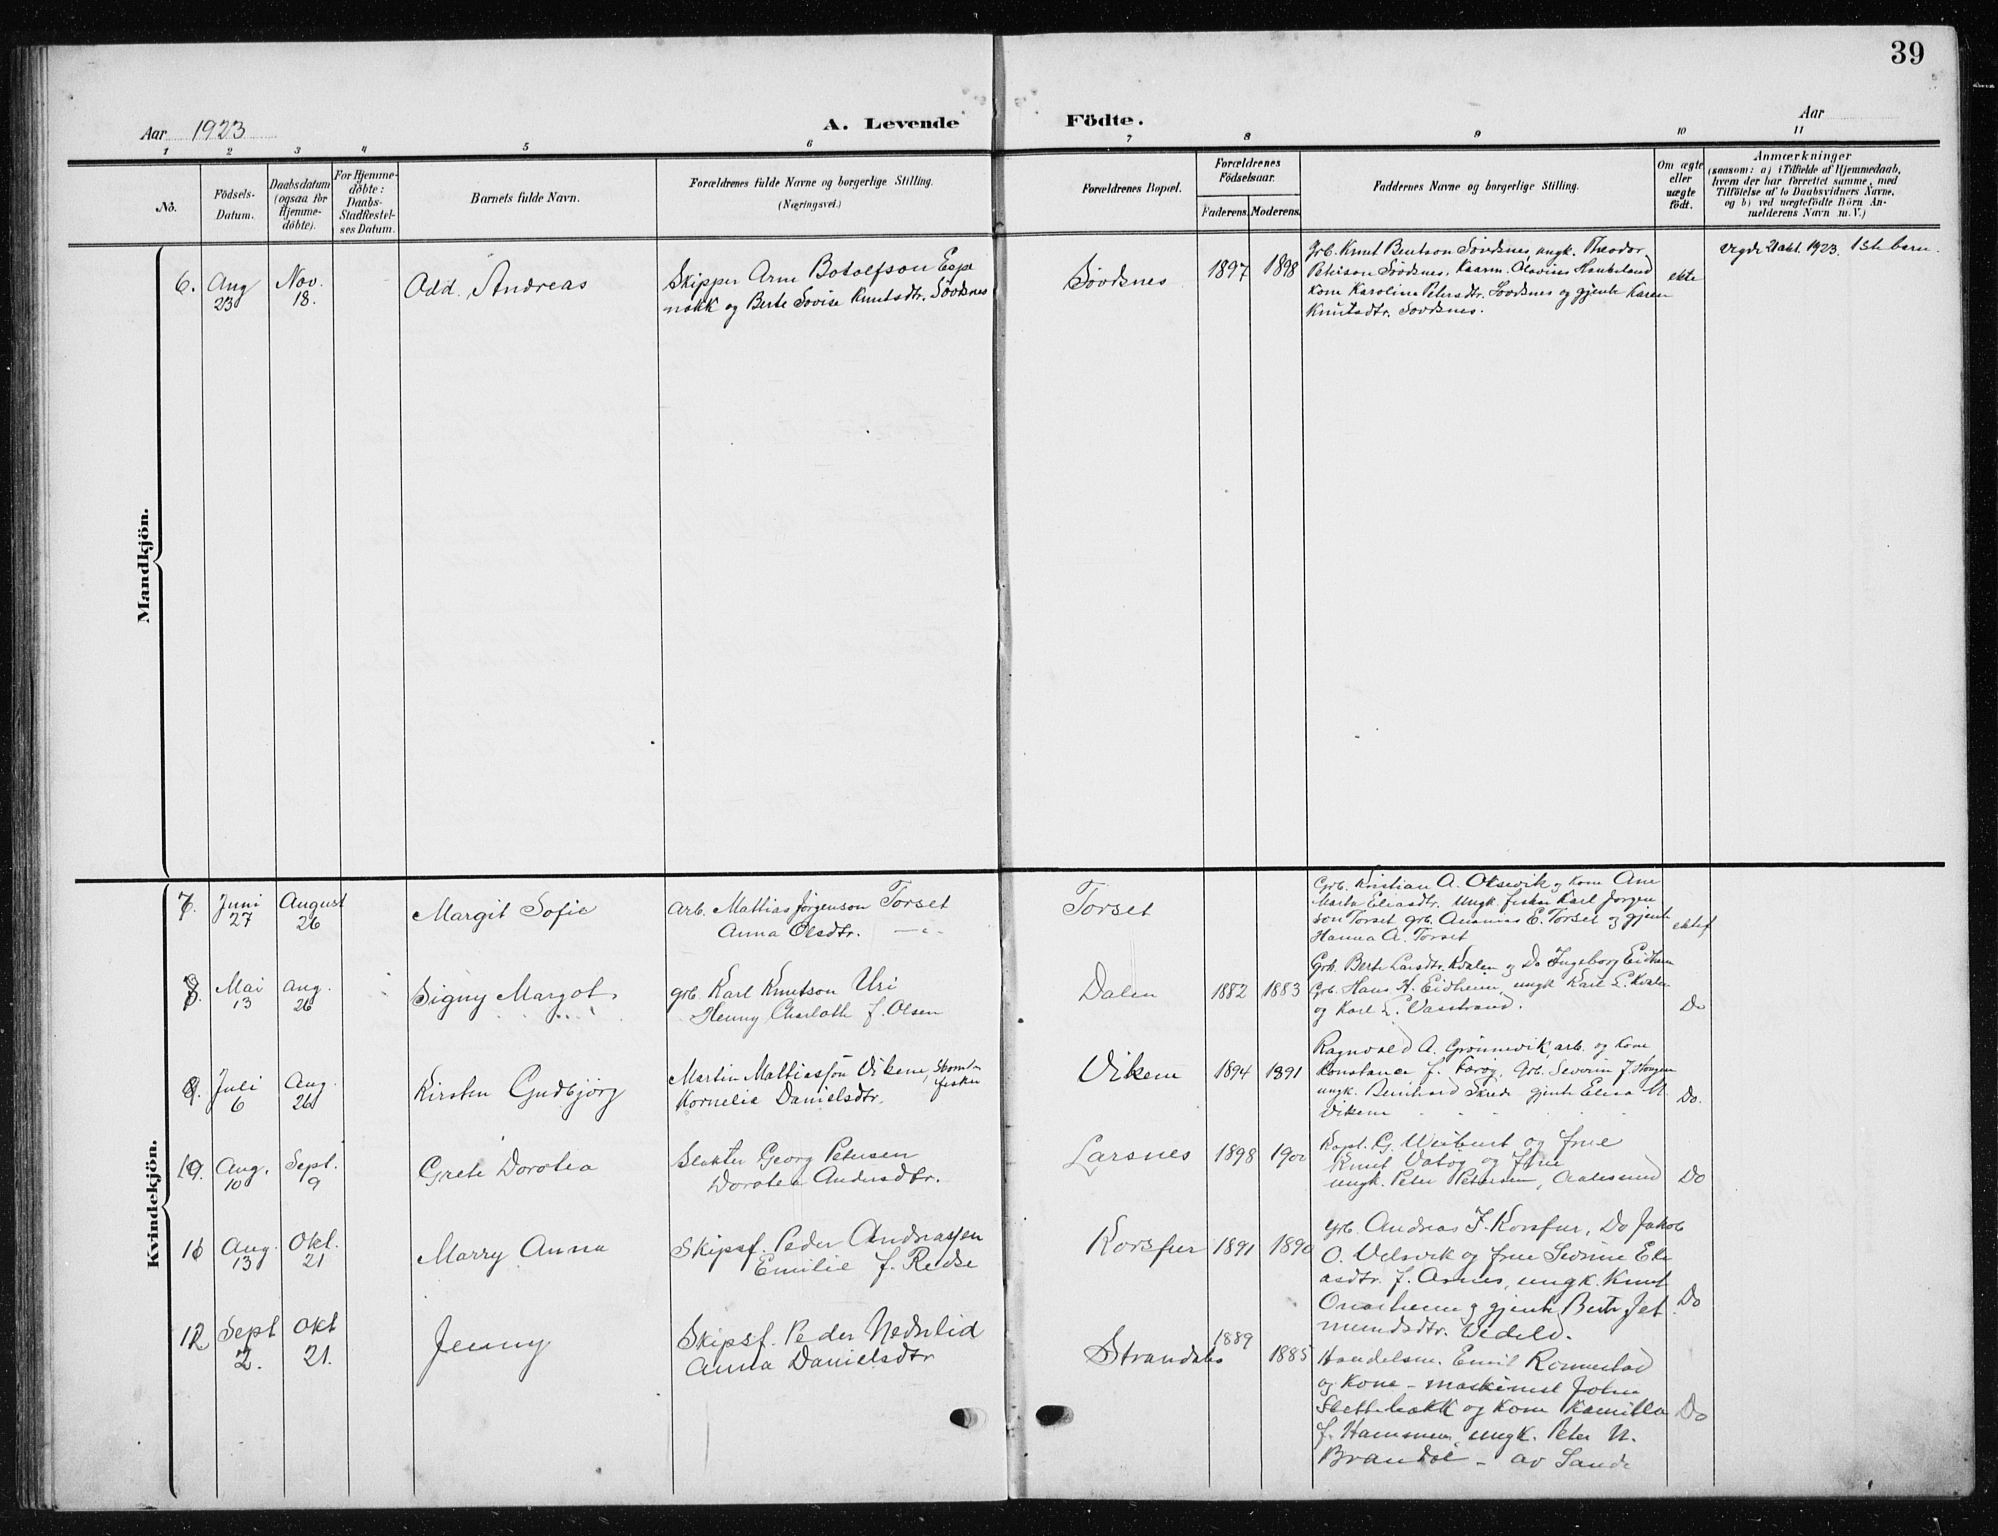 39
Aar 1923
A. Levende Födte.
Aar
1 2 3 4 5 6 7 8 9 10 11
No.
Födsels-Datum.
Daabsdatum (ogsaa for Hjemme-döbte).
For Hjemme-döbte: Daabs-Stadfæstel-ses Datum.
Barnets fulde Navn.
Forældrenes fulde Navne og borgerlige Stilling.
(Næringsvei.)
Forældrenes Bopæl.
Forældrenes Födselsaar.
Faderens. Moderens.
Faddernes Navne og borgerlige Stilling.
Om ægte eller uægte födt.
Anmærkninger
(saasom: a) i Tilfælde af Hjemmedaab,
hvem der har forrettet samme, med
Tilföielse af to Daabsvidners Navne,
og b) ved uægtefödte Börn An-
melderens Navn m. V.)
Mandkjön.
6. Aug 23 Nov. 18. Odd Andreas
Skipper Arne Botolfson Espe
nakk og Berte Lovise Knutsdtr. Sövdsnes
Sövdsnes 1897 1898
Grb. Knut Bentson Sövdsnes, ungk. Theodor
Peterson Sövdsnes, Kaarm. Olavius Haukeland
Kone Karoline Petersdtr. Sövdsnes og gjente Karen
Knutsdtr. Sövdsnes.
ekte
Vigde 21 okt. 1923. 1ste barn.
Kvindekjön.
7. Juni 27 August 26 Margit Sofie
Arb. Mattias Jörgenson Torset
Anna Olsdtr. —"—
Torset
Grb. Kristian A. Oksevik og Kone Ane
Marta Eliasdtr. Ungk. fisker Karl Jörgen
son Torset grb. Ananias E. Torset og gjente
Hanna A. Torset
8. Mai 13 Aug. 26 Signy Margot
grb. Karl Knutson Uri
Henny Charloth f. Olsen
Dalen 1882 1883
Grb. Berte Larsdtr. Kvalen og Do Ingeborg Eidheim
Grb. Hans H. Eidheim, ungk Karl L. Kvalen
og Karl L. Vasstrand.
Do
9. Juli 6 Aug. 26 Kirsten Gudbjörg
Martin Mattiassön Vikene,
Kornelie Danielsdtr. fisker
Vikene 1894 1891
Ragnvald A. Grönnevik, arb. og Kone
Konstance f. Faröy, Grb. Severin J.
ungk. Bernhard Skrede gjente Elisa M.
Vikene
Do.
10. Aug. 10 Sept. 9 Grete Dorotea
Slakter Georg Petersen
Dorotea Andersdtr.
Larsnes 1898 1900
Kapt. G. og frue
Knut Vatöy og frue
ungk. Peter Petersen, Aalesund
Do
11 Aug. 13 Okt. 21 Marry Anna
Skipsf. Peder Andreassen
Emilie f. Redse
Korsfur 1891 1890
Grb. Andreas J. Korsfur, Do Jakob
O. Velsvik og frue Sevrine Eli
asdtr. f. Aanes, ungk. Knut
Onarheim og gjente Berte Jet
mundsdtr. Vedeld.
Do
12 Sept 2. Okt 21. Jenny
Skipsf. Peder Nedrelid
Anna Danielsdtr
Strandabö 1889 1885
Handelsm. Emil Rönnestad
og Kone – maskinist John
Slettebakk og Kone Kamilla
f. Hammer, ungk. Peter N.
Brandal – av Sande
Do